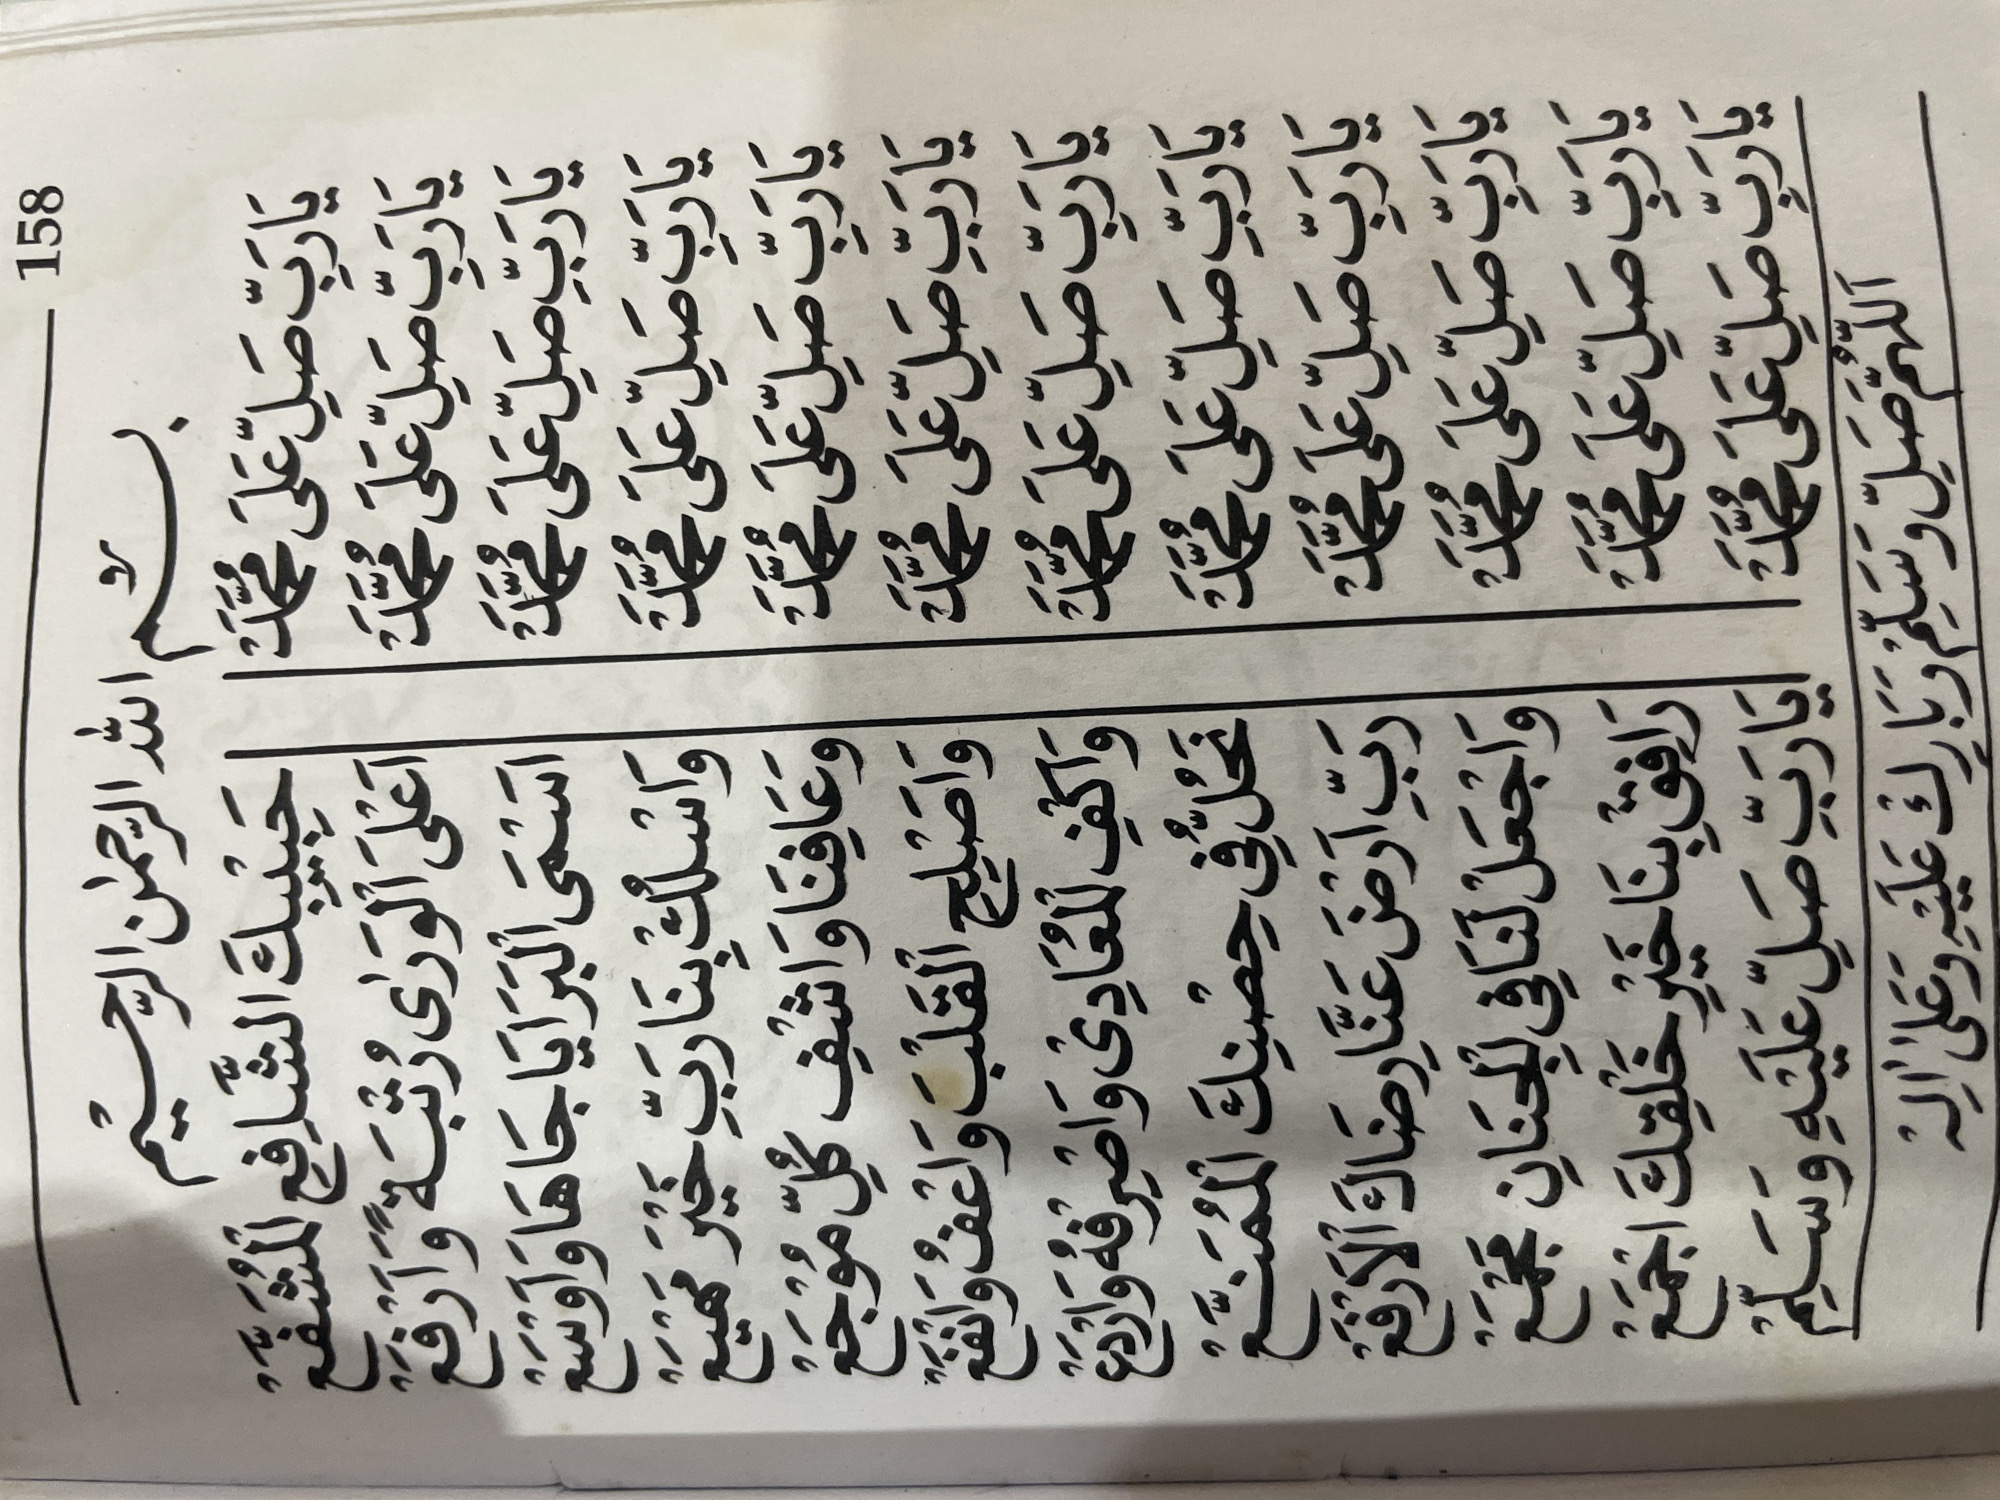 158
بِسْمِ اللهِ الرَّحْمٰنِ الرَّحِيْمِ
يَارَبِّ صَلِّ عَلَى مُحَمَّدْ حَبِيْبِكَ الشَّافِعِ الْمُشَفَّعْ
يَارَبِّ صَلِّ عَلَى مُحَمَّدْ اَعْلَى الْوَرٰى رُتْبَةً وَاَرْفَعْ
يَارَبِّ صَلِّ عَلَى مُحَمَّدْ اَسْمَى الْبَرَايَا جَاهًا وَاَوْسَعْ
يَارَبِّ صَلِّ عَلَى مُحَمَّدْ وَاسْلُكْ بِنَا رَبِّ خَيْرَ مَهْيَعْ
يَارَبِّ صَلِّ عَلَى مُحَمَّدْ وَعَافِنَا وَاشْفِ كُلَّ مُوْجَعْ
يَارَبِّ صَلِّ عَلَى مُحَمَّدْ وَاَصْلِحِ الْقَلْبَ وَاعْفُ وَانْفَعْ
يَارَبِّ صَلِّ عَلَى مُحَمَّدْ وَاكْفِ الْمُعَادِيْ وَاصْرِفْهُ وَارْدَعْ
يَارَبِّ صَلِّ عَلَى مُحَمَّدْ نَحُلُّ فِيْ حِصْنِكَ الْمُمَنَّعْ
يَارَبِّ صَلِّ عَلَى مُحَمَّدْ رَبِّ ارْضَ عَنَّا رِضَاكَ الْاَرْفَعْ
يَارَبِّ صَلِّ عَلَى مُحَمَّدْ وَاجْعَلْ لَنَا فِي الْجِنَانِ مَجْمَعْ
يَارَبِّ صَلِّ عَلَى مُحَمَّدْ رَافِقْ بِنَا خَيْرَ خَلْقِكَ اجْمَعْ
يَارَبِّ صَلِّ عَلَى مُحَمَّدْ يَارَبِّ صَلِّ عَلَيْهِ وَسَلِّمْ
اَللّٰهُمَّ صَلِّ وَسَلِّمْ وَبَارِكْ عَلَيْهِ وَعَلَى اٰلِهْ